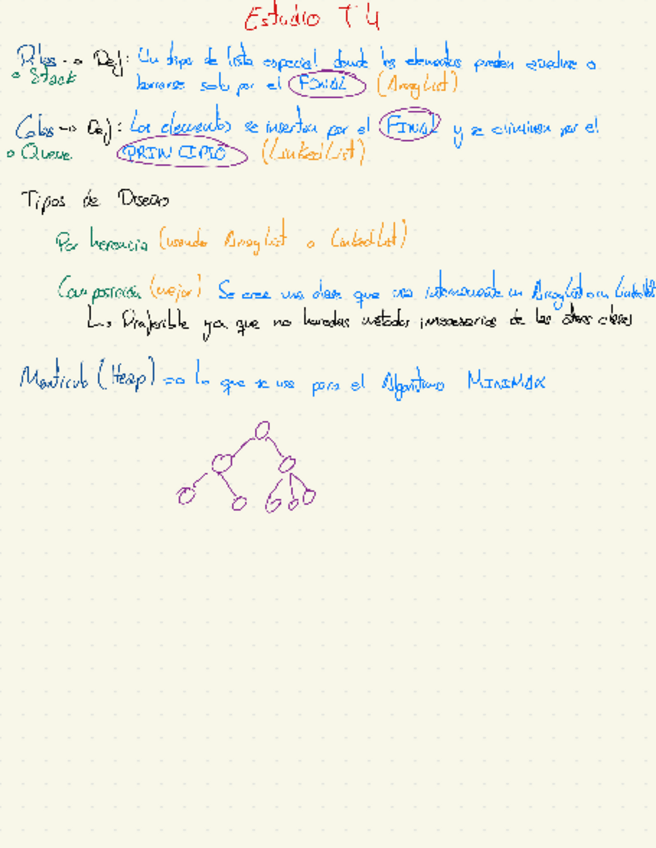 Estudio T4
Pilas -> Def: Un tipo de lista especial donde los elementos pueden añadirse o
o Stack borrarse solo por el FINAL (ArrayList)
Colas -> Def: Los elementos se insertan por el FINAL y se eliminan por el
o Queue PRINCIPIO (LinkedList)
Tipos de Diseño
Por herencia (usando ArrayList o LinkedList)
Composición (mejor) Se crea una clase que usa internamente un ArrayList o un LinkedList
L> Preferible ya que no heredas métodos innecesarios de las otras clases
Montículo (Heap) => lo que se usa para el Algoritmo MINIMAX